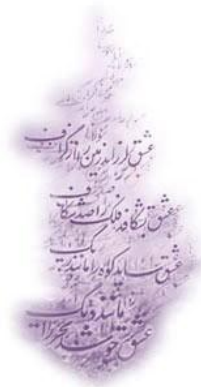 عشق لرزاند زمین را از گزاف
عشق بشکافد فلک را صد شکاف
عشق ساید کوه را مانند ریگ
عشق جوشد بحر را مانند دیگ